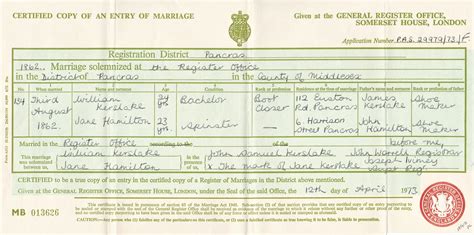 CERTIFIED COPY OF AN ENTRY OF MARRIAGE
Given at the GENERAL REGISTER OFFICE,
SOMERSET HOUSE, LONDON
Application Number P.A.S. 29979/73/E
Registration District Pancras
1862. Marriage solemnized at the Register Office
in the District of Pancras in the County of Middlesex
134 Third August 1862. William Kerslake 24 yrs. Bachelor Boot Closer 112 Euston Rd. Pancras James Kerslake Shoe Maker
Jane Hamilton 23 yrs. Spinster 6. Harrison Street Pancras John Hamilton Shoe Maker
Married in the Register Office before me,
This marriage was solemnized between us, William Kerslake Jane Hamilton in the presence of us, John Samuel Kerslake X The mark of Jane Kerslake John Worrell Registrar Joseph Ivimey Supt Reg.
CERTIFIED to be a true copy of an entry in the certified copy of a Register of Marriages in the District above mentioned.
Given at the GENERAL REGISTER OFFICE, SOMERSET HOUSE, LONDON, under the Seal of the said Office, the 12th day of April 1973
MB 013626